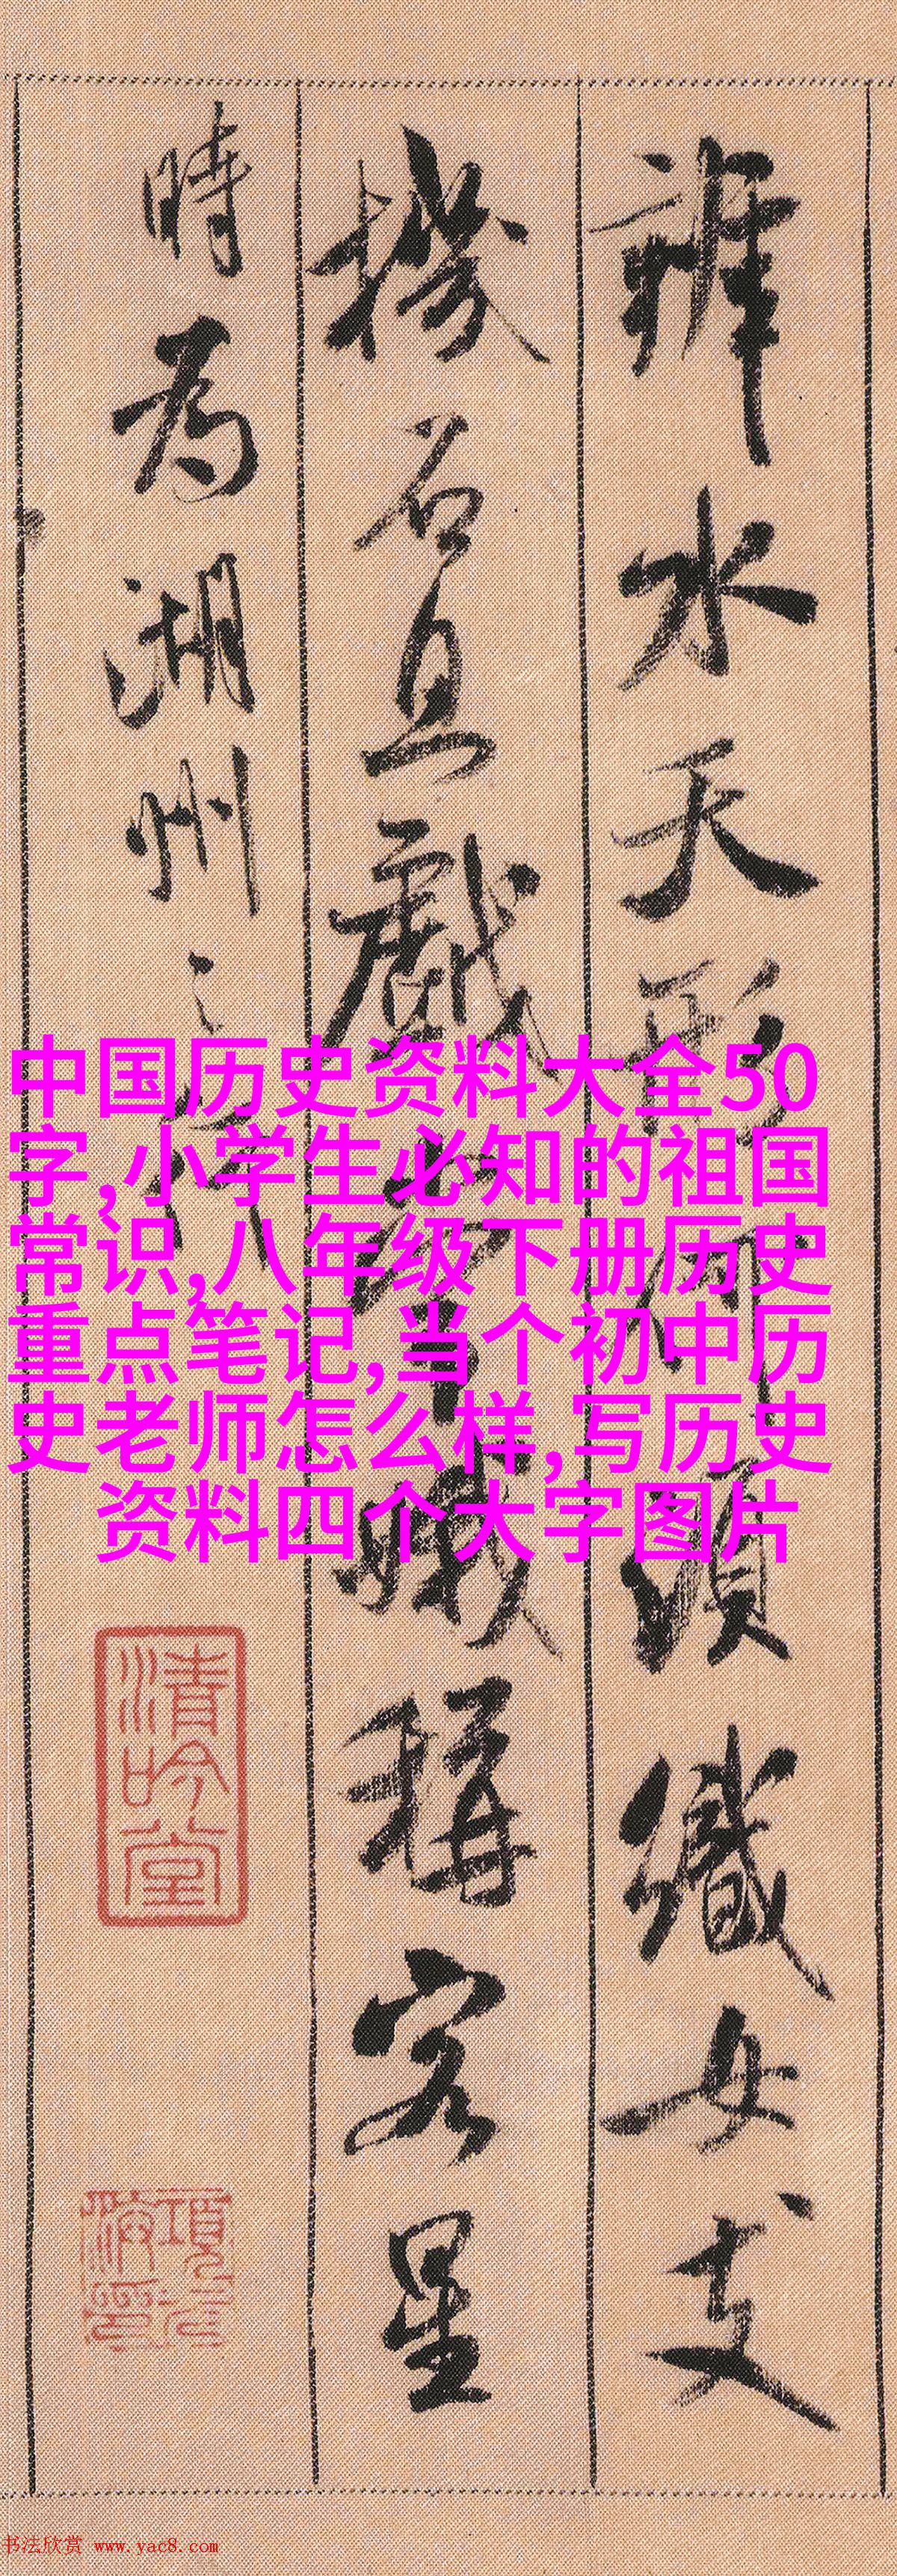 谁水天形何須織女支
機石且戲常娥稱客星
時為湖州之行
中国历史资料大全50
字,小学生必知的祖国
常识,八年级下册历史
重点笔记,当个初中历
史老师怎么样,写历史
资料四个大字图片
清吟堂
书法欣赏 www.yac8.com